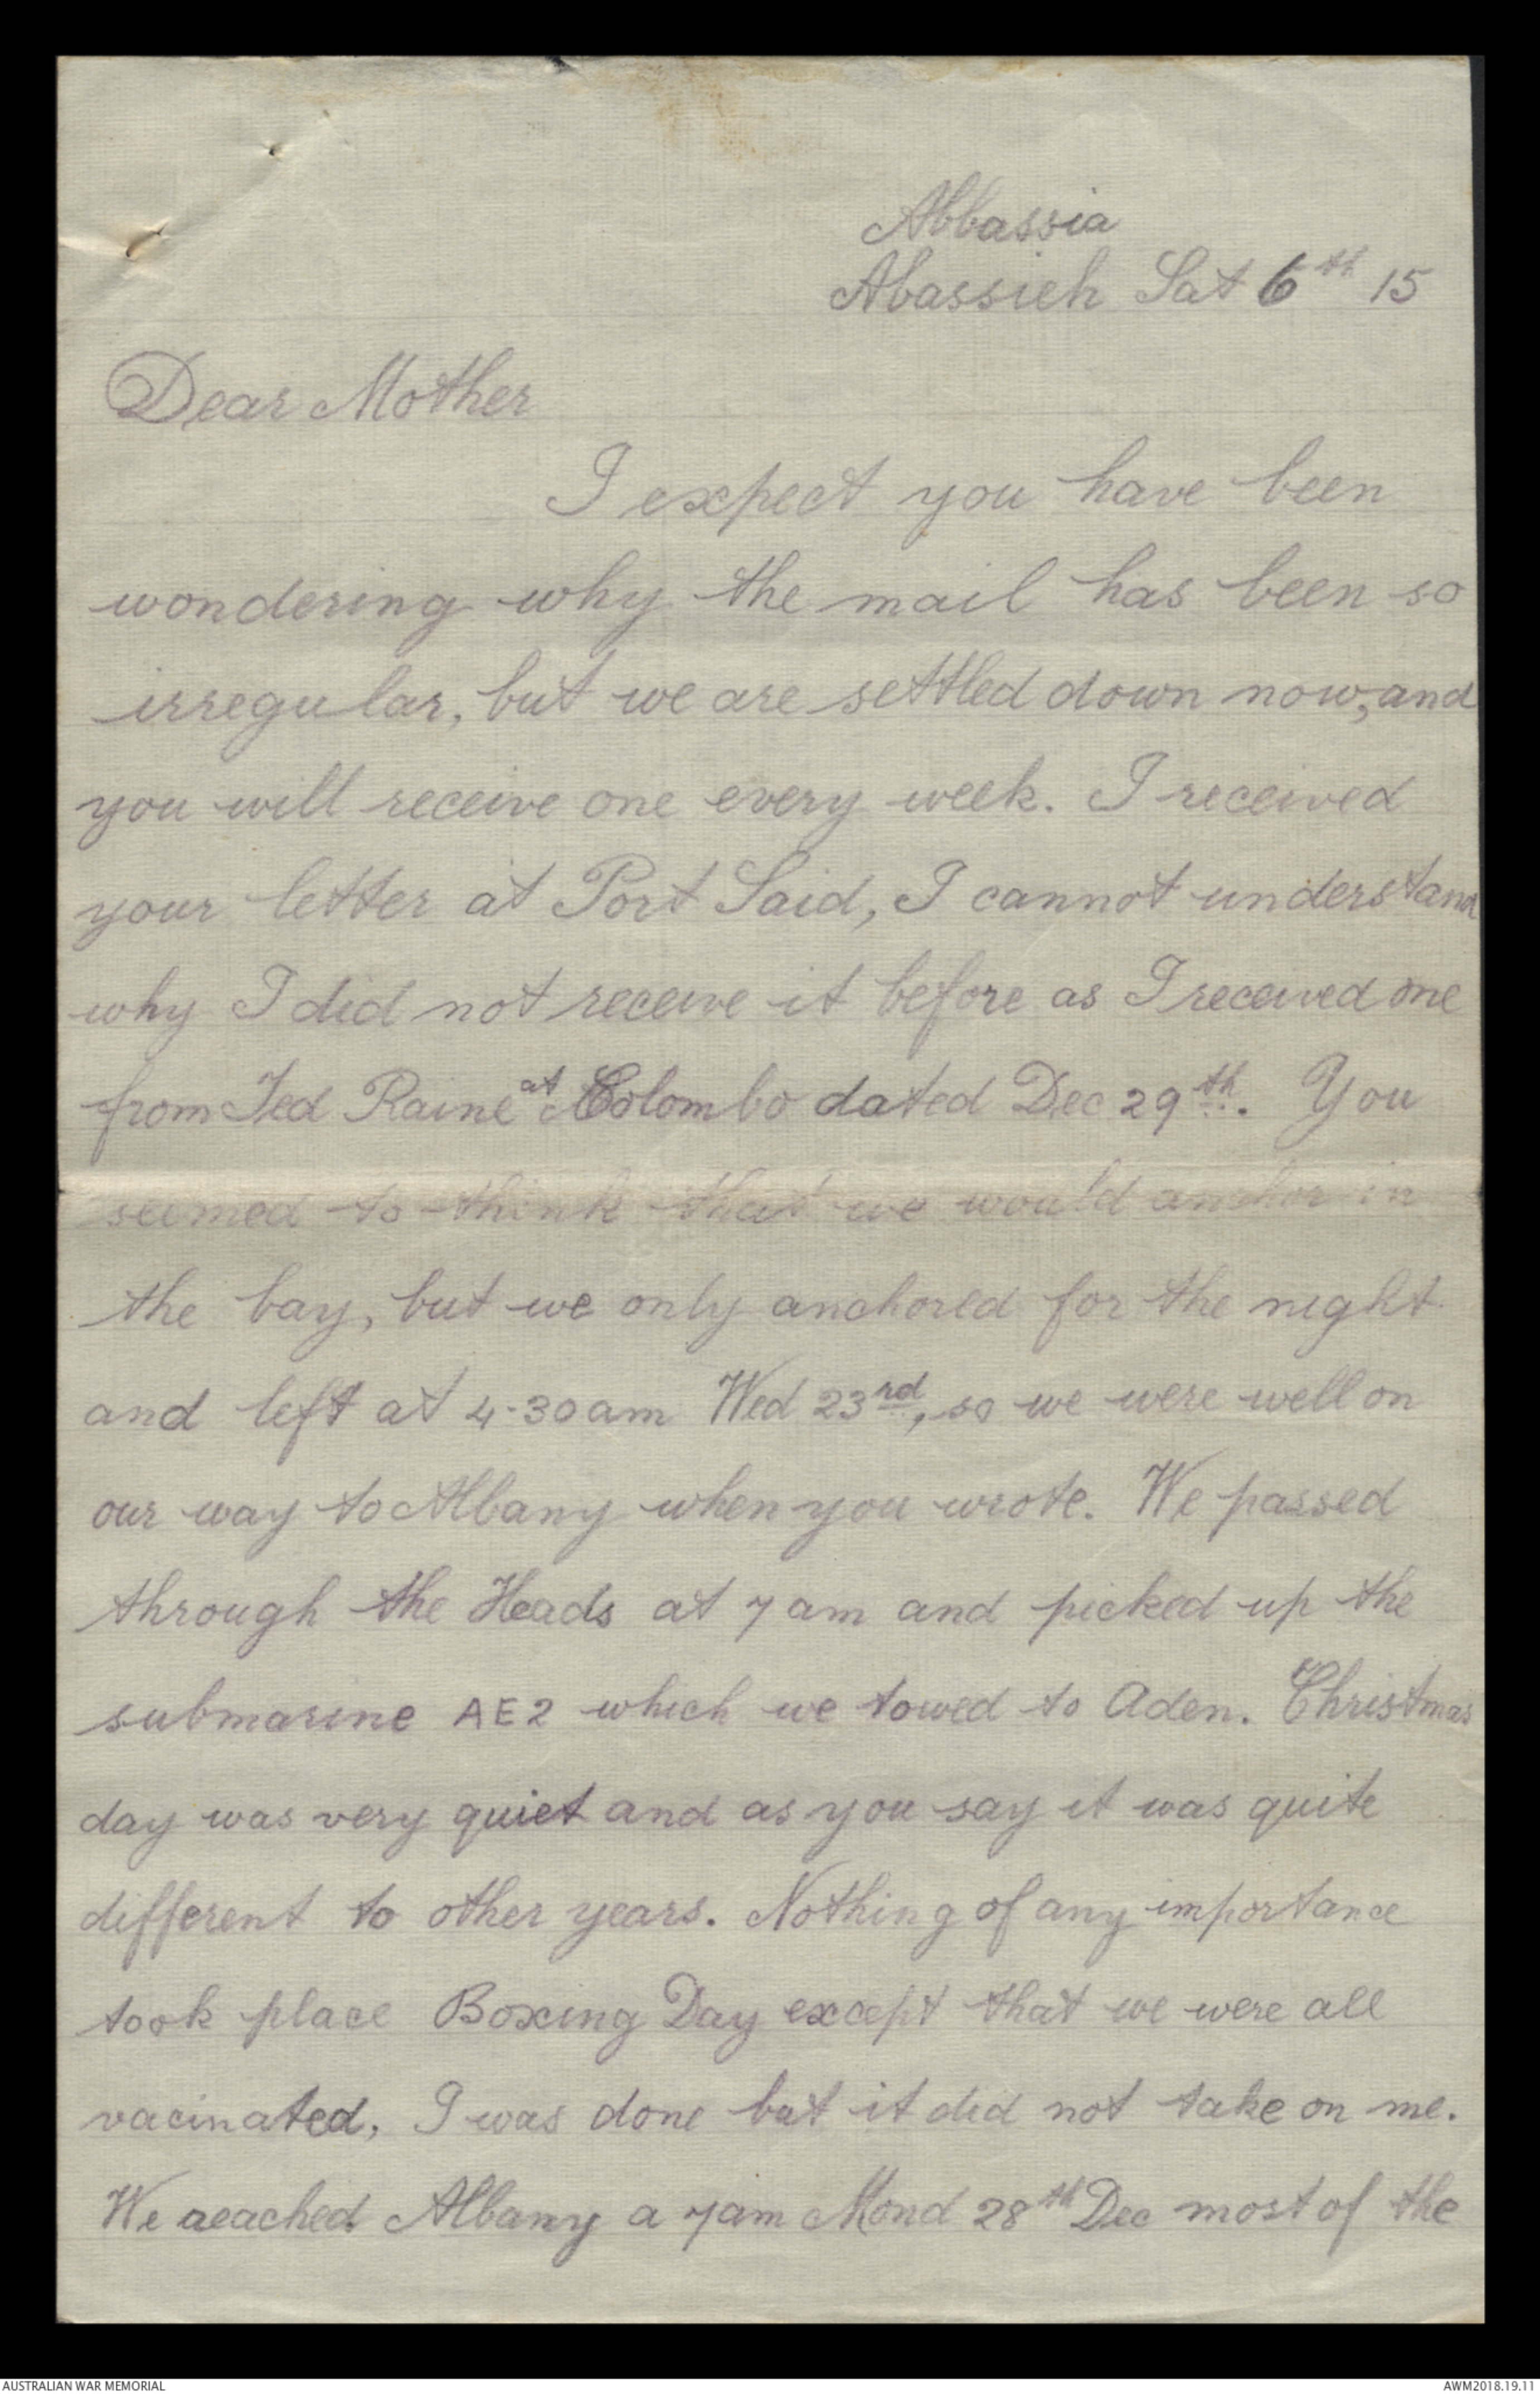 Abbassia
Abassieh Sat 6th 15
Dear Mother
I expect you have been
wondering why the mail has been so
irregular, but we are settled down now, and
you will receive one every week. I received
your letter at Port Said, I cannot understand
why I did not receive it before as I received one
from Ted Raine at Colombo dated Dec 29th. You
seemed to think that we would anchor in
the bay, but we only anchored for the night
and left at 4-30 am Wed 23rd, so we were well on
our way to Albany when you wrote. We passed
through the Heads at 7 am and picked up the
submarine AE2 which we towed to Aden. Christmas
day was very quiet and as you say it was quite
different to other years. Nothing of any importance
took place Boxing Day except that we were all
vacinated, I was done but it did not take on me.
We reached Albany a 7am Mond 28th Dec most of the
AUSTRALIAN WAR MEMORIAL
AWM2018.19.11